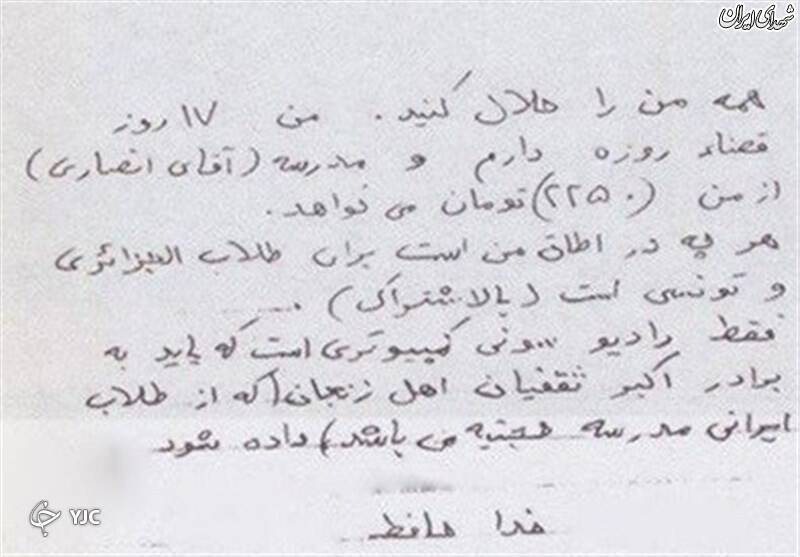 شهدای ایران
همه من را حلال کنید. من ۱۷ روز
قضاء روزه دارم و مدرسه (آقای انصاری)
از من (۲۲۵۰) تومان می خواهد.
هر چه در اطاق من است برای طلاب الجزائری
و تونسی است (بالاشتراک).
فقط رادیو سونی کمپیوتری است که باید به
برادر اکبر ثقفیان اهل زنجان (که از طلاب
ایرانی مدرسه حجتیه می باشد) داده شود
خدا حافظ
YJC